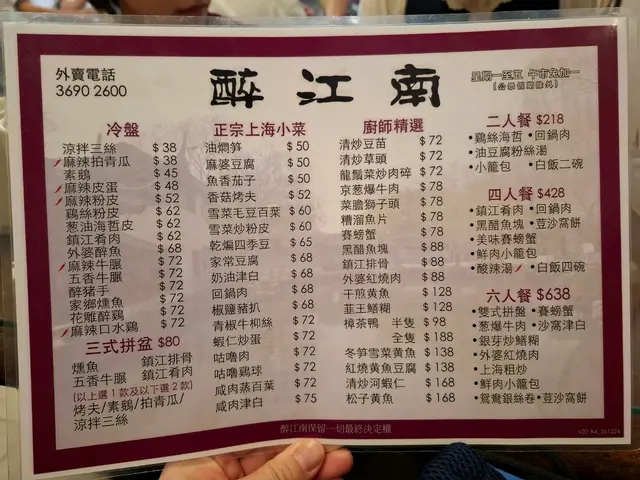 外賣電話
3690 2600
醉江南
星期一至五 午市免加一
[公眾假期除外]
冷盤
涼拌三絲 $ 38
麻辣拍青瓜 $ 38
素鵝 $ 45
麻辣皮蛋 $ 48
麻辣粉皮 $ 52
鷄絲粉皮 $ 62
葱油海哲皮 $ 62
鎮江肴肉 $ 62
外婆醉魚 $ 68
麻辣牛腒 $ 72
五香牛腒 $ 72
醉豬手 $ 72
家鄉燻魚 $ 72
花雕醉鷄 $ 72
麻辣口水鷄 $ 72
三式拼盆 $80
燻魚 鎮江排骨
五香牛腒 鎮江肴肉
(以上選1款及以下選2款)
烤夫/素鵝/拍青瓜/
涼拌三絲
正宗上海小菜
油燜筍 $ 50
麻婆豆腐 $ 50
魚香茄子 $ 50
香菇烤夫 $ 52
雪菜毛豆百葉 $ 60
雪菜炒粉皮 $ 60
乾煸四季豆 $ 65
家常豆腐 $ 68
奶油津白 $ 68
回鍋肉 $ 68
椒鹽豬扒 $ 68
青椒牛柳絲 $ 72
蝦仁炒蛋 $ 72
咕嚕肉 $ 72
咕嚕鷄球 $ 72
咸肉蒸百葉 $ 72
咸肉津白 $ 75
廚師精選
清炒豆苗 $ 72
清炒草頭 $ 72
龍鬚菜炒肉碎 $ 72
京葱爆牛肉 $ 78
菜膽獅子頭 $ 78
糟溜魚片 $ 78
賽螃蟹 $ 78
黑醋魚塊 $ 88
鎮江排骨 $ 88
外婆紅燒肉 $ 88
干煎黃魚 $ 128
韮王鱔糊 $ 128
樟茶鴨 半隻 $ 98
全隻 $ 188
冬筍雪菜黃魚 $ 138
紅燒黃魚豆腐 $ 138
清炒河蝦仁 $ 168
松子黃魚 $ 168
二人餐 $218
•鷄絲海哲 •回鍋肉
•油豆腐粉絲湯
•小籠包 •白飯二碗
四人餐 $428
•鎮江肴肉 •回鍋肉
•黑醋魚塊 •荳沙窩餅
•美味賽螃蟹
•鮮肉小籠包
•酸辣湯 •白飯四碗
六人餐 $638
•雙式拼盤 •賽螃蟹
•葱爆牛肉 •沙窩津白
•銀芽炒鱔糊
•外婆紅燒肉
•上海粗炒
•鮮肉小籠包
•鴛鴦銀絲卷 •荳沙窩餅
醉江南保留一切最終決定權
v20.A4_261224